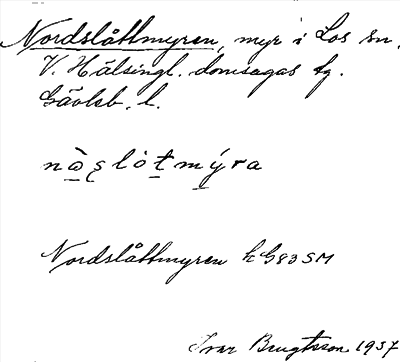 Nordslåttmyren, myr i Los sn.
V. Hälsingl. domsagas tg.
Gävleb. l.
nὼʂlòtmýra
Nordslåttmyren k G83SM
Ivar Bengtsson 1937